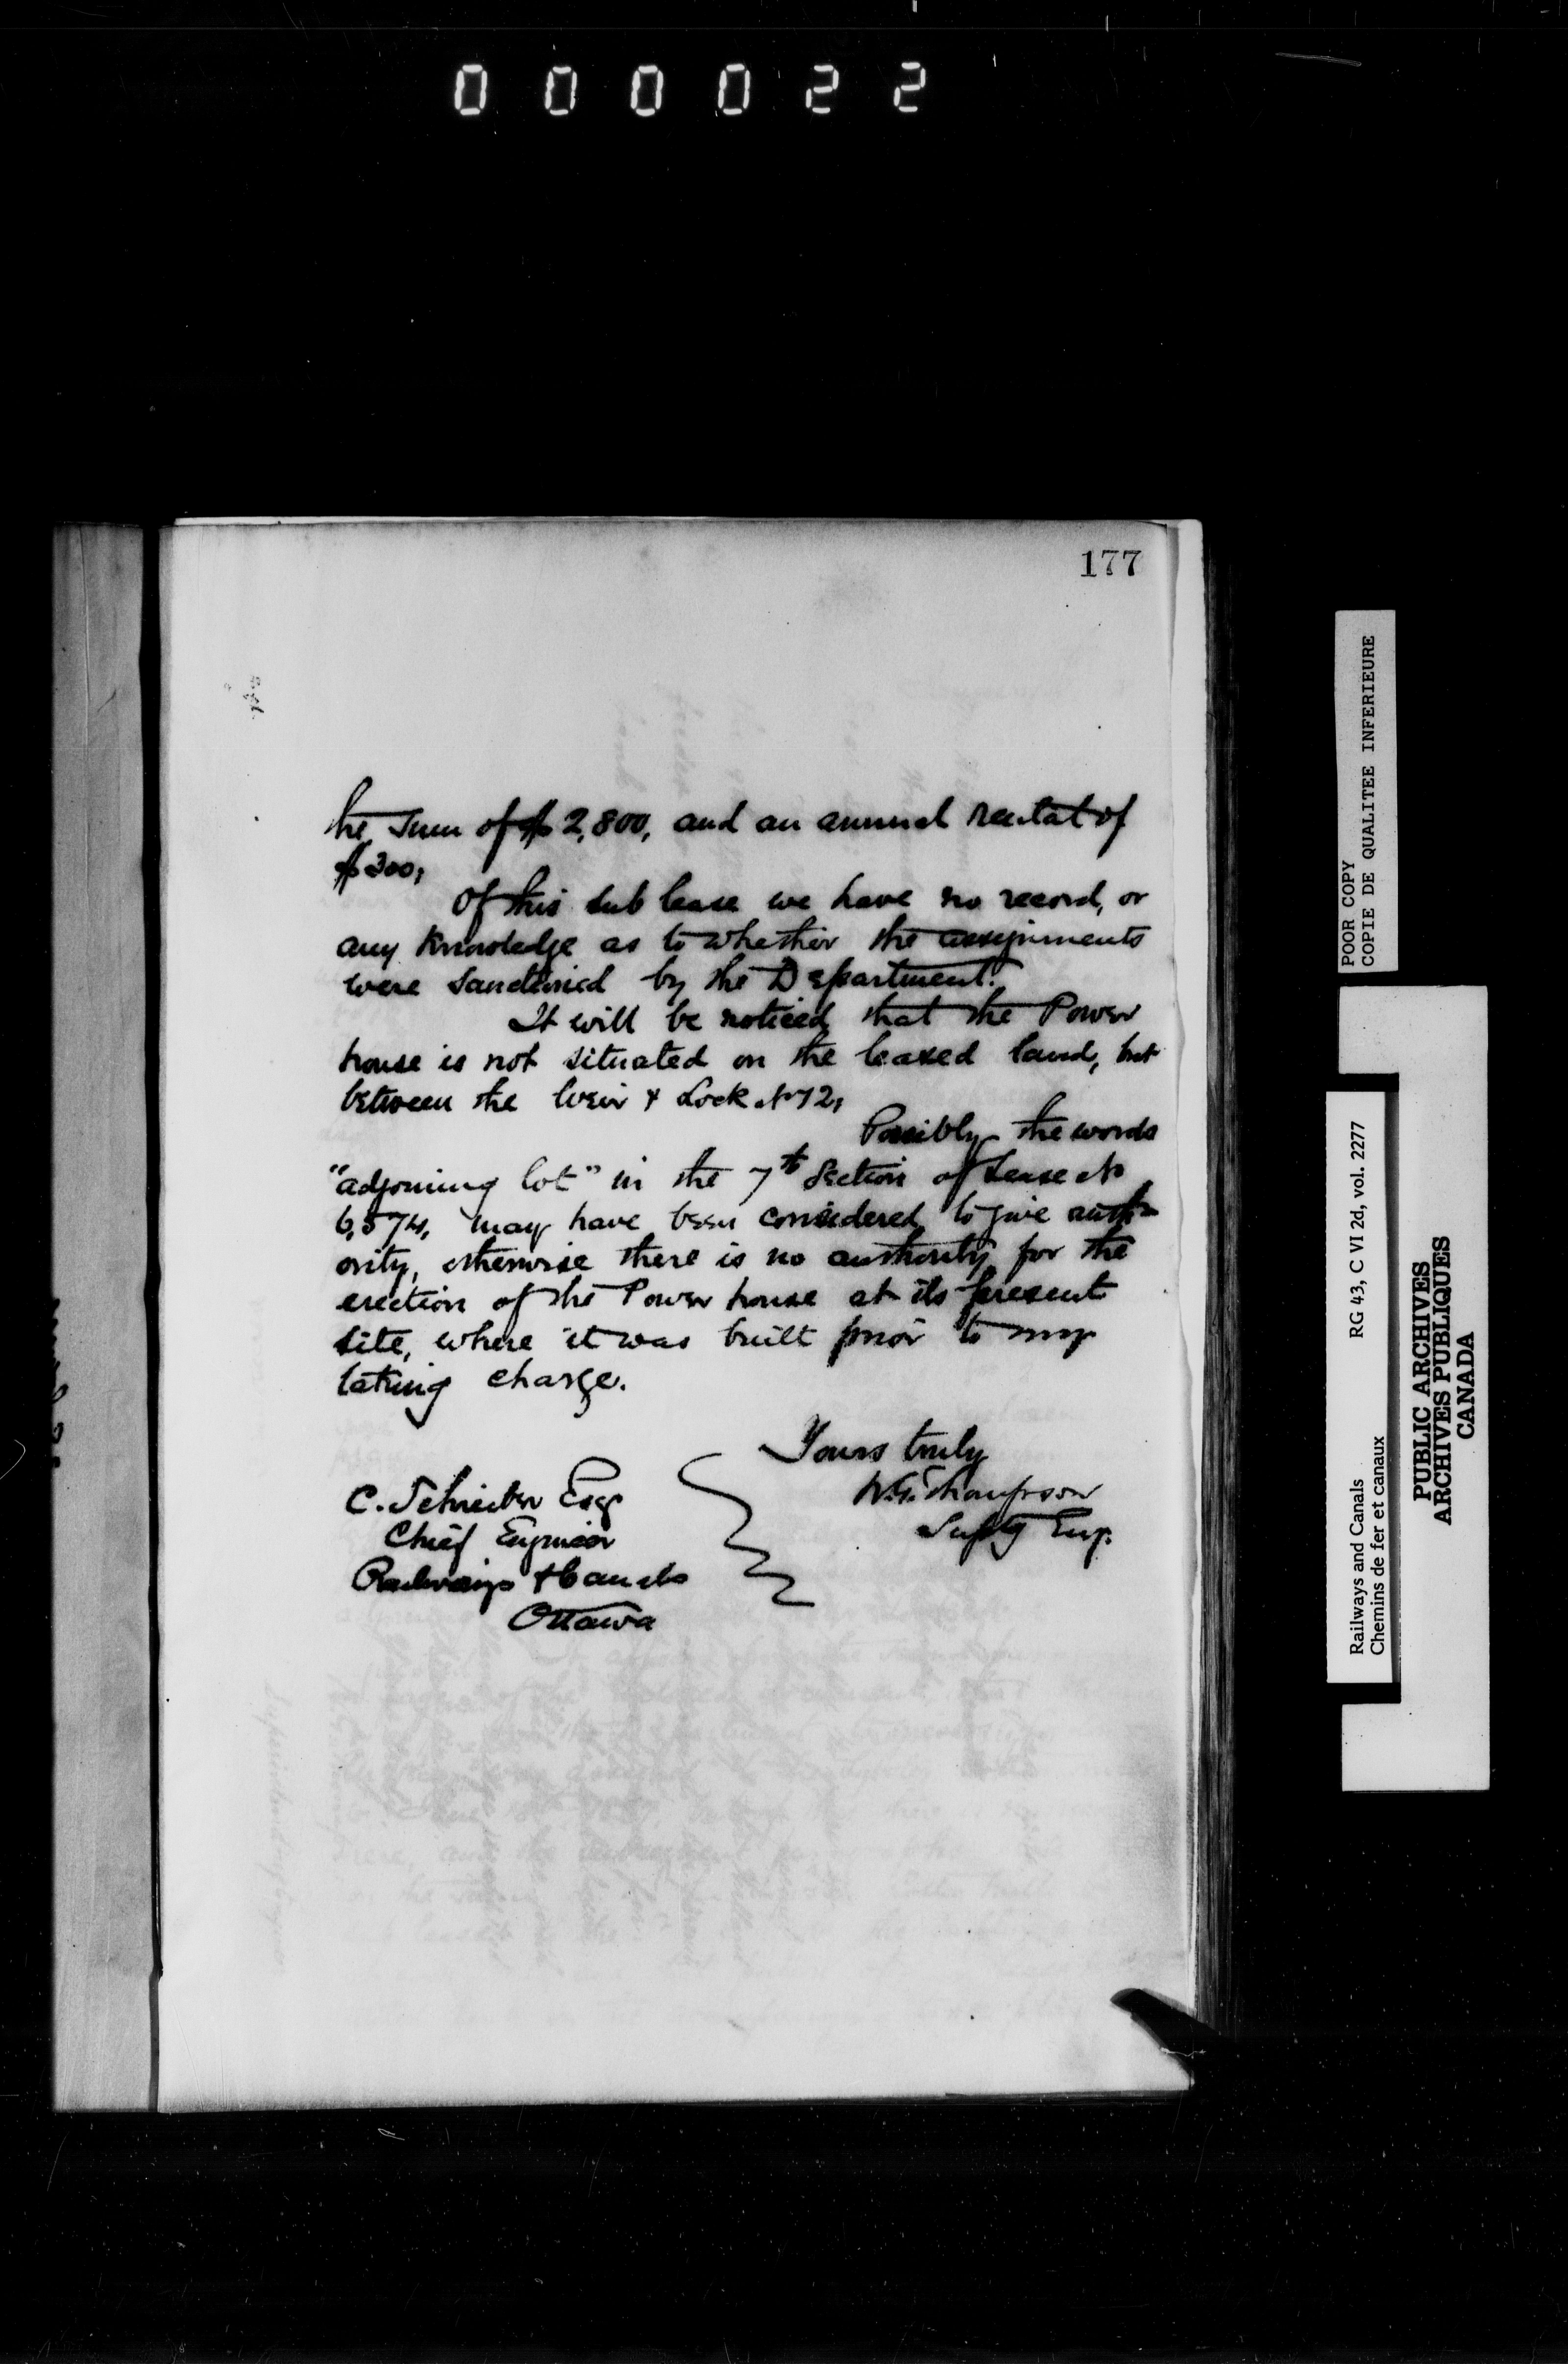 000022
177
the sum of $2,800, and an annual rental of
$300,
Of this sub lease we have no record, or
any knowledge as to whether the assignments
were sanctioned by the Department.
It will be noticed that the Power
house is not situated on the leased land, but
between the Weir & Lock No 12,
Possibly the words
"adjoining lot" in the 7th Section of Lease No
6,574, may have been considered to give auth-
ority, otherwise there is no authority for the
erection of the Power house at its present
site, where it was built prior to my
taking charge.
Yours truly
W.G. Thompson
Suptg Eng.
C. Schreiber Esq
Chief Engineer
Railways & Canals
Ottawa
POOR COPY
COPIE DE QUALITEE INFERIEURE
Railways and Canals RG 43, C VI 2d, vol. 2277
Chemins de fer et canaux
PUBLIC ARCHIVES
ARCHIVES PUBLIQUES
CANADA